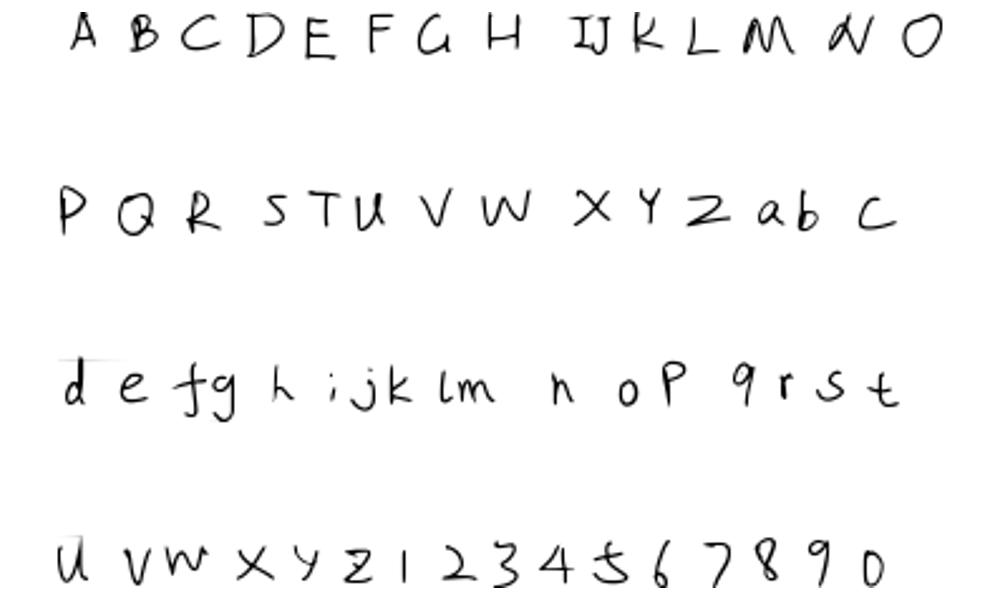 A B C D E F G H I J K L M N O
P Q R S T U V W X Y Z a b c
d e f g h i j k l m n o p q r s t
u v w x y z 1 2 3 4 5 6 7 8 9 0